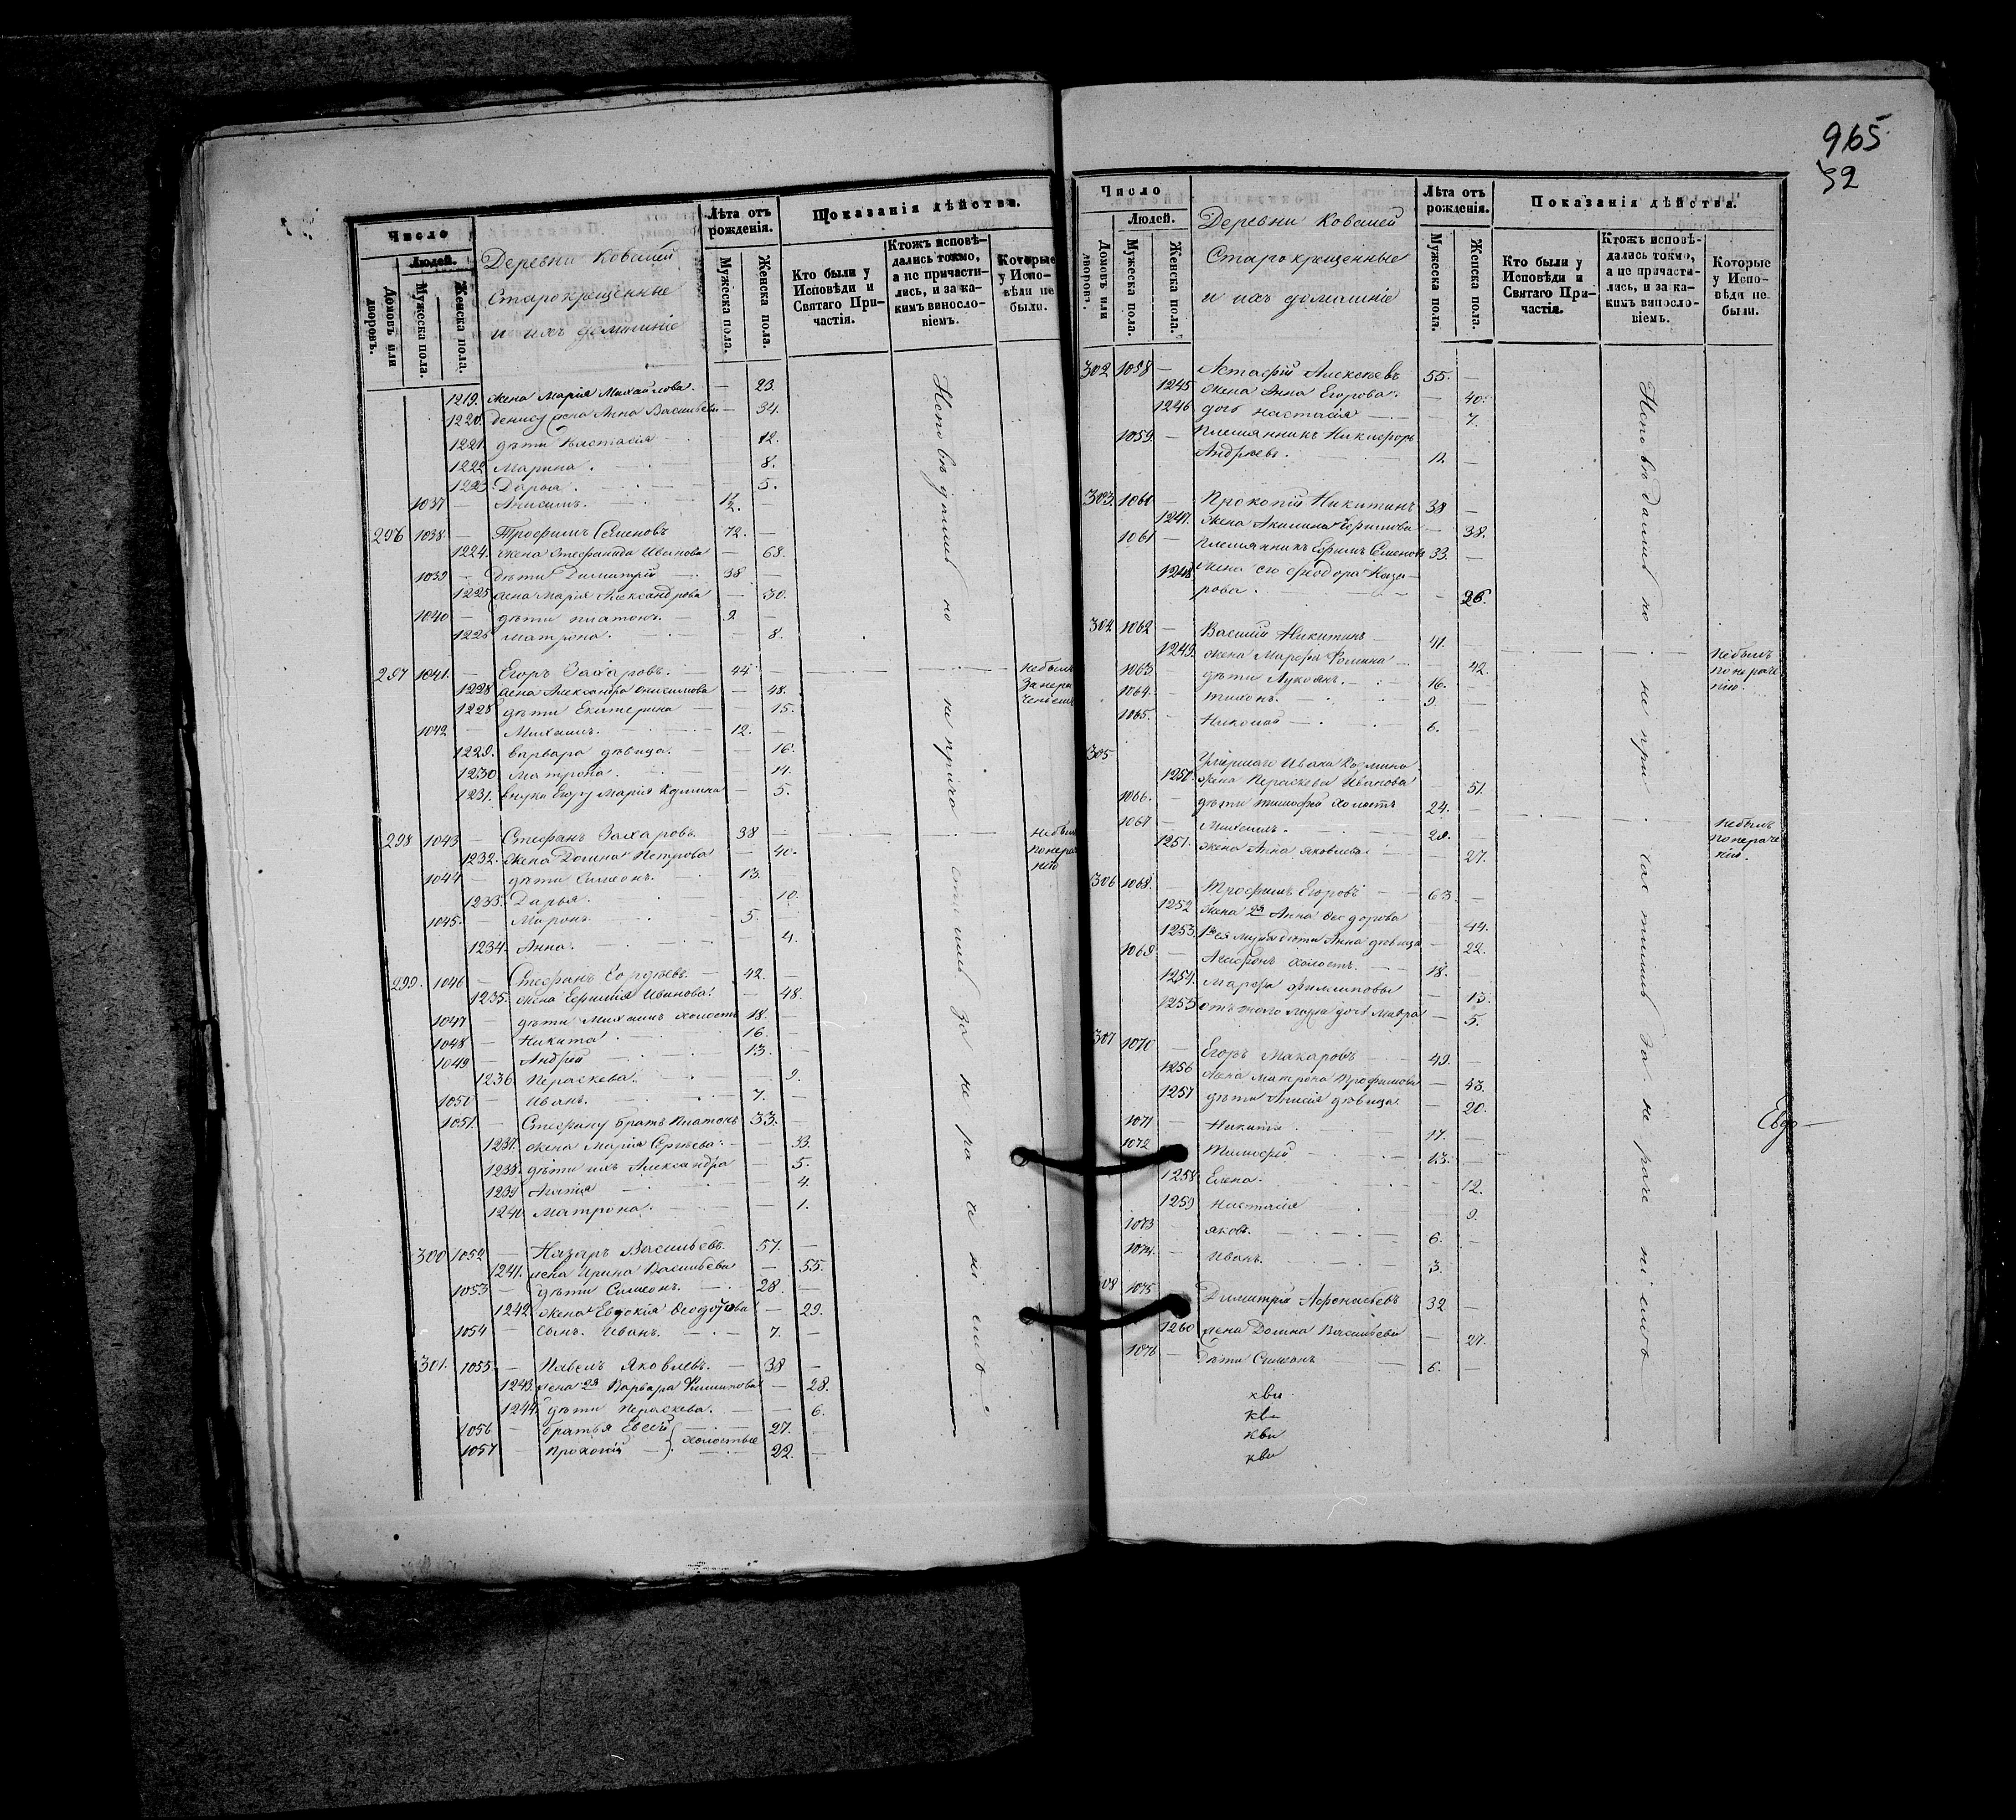 965
52
Число
Людей.
Домовъ или дворовъ.
Мужеска пола.
Женска пола.
Деревни Ковалей
Старокрещенные
и ихъ домашніе
Лѣта отъ рожденія.
Мужеска пола.
Женска пола.
Показанія дѣйства.
Кто были у Исповѣди и Святаго Причастія.
Ктожъ исповѣдались токмо, а не причастились, и за какимъ винословіемъ.
Которые у Исповѣди не были.
1219. жена Марія Михайлова. — 23.
1220. Денису жена Анна Васильева — 34.
1221. дѣти Настасія — 12.
1222 Марина. 8.
1223 Дарья. 5.
1037 — Анисимъ. 1/2. —
296 1038 — Трофимъ Семеновъ 72. —
1224. жена Стефанида Иванова — 68.
1039 — дѣти Димитрій 38 —
1225 жена Марія Александрова — 30.
1040 — дѣти Платонъ. 9 —
1226 Матрона. — 8.
297 1041. — Егоръ Захаровъ. 44 —
1228 жена Александра Онисимова — 48.
1228 дѣти Екатерина — 15.
1042 — Михаилъ. 12. —
1229. Варвара дѣвица. — 16.
1230 Матрона. — 14.
1231. внука Егору Марія Кузмина — 5.
небылъ
298 1043 — Стефанъ Захаровъ. 38 —
1232. жена Домна Петрова — 40.
1044 — дѣти Симеонъ. 13.
1233. Дарья. 10.
1045. — Миронъ. 5. —
1234. Анна. 4.
299. 1046 — Стефанъ Гордѣевъ. — 42. —
1235. жена Ефимія Иванова. — 48.
1047 — дѣти Михаилъ холостъ 18. —
1048 — Никита 16. —
1049 — Андрей 13. —
1236 Пераскева. — 9.
1050 — Иванъ. 7. —
1051. — Стефану братъ Платонъ 33. —
1237. жена Марія Сергѣева. — 33.
1238. дѣти ихъ Александра — 5.
1239 Агапія — 4.
1240 Матрона. — 1.
300 1052 — Назаръ Васильевъ. 57. —
1241. жена Ирина Васильева — 55.
1053 — дѣти Симеонъ. 28 —
1242 жена Евдокія Ѳеодотова — 29.
1054 — сынъ Иванъ. 7. —
301. 1055 — Павелъ Яковлевъ. — 38 —
1243. жена 2я Варвара Филиппова — 28.
1244. дѣти Пераскева. — 6.
1056 — братья Евсей } холостые 27. —
1057 — Прокопій 22. —
Исповѣдались но не причастились за нераченіемъ
Число
Людей.
Домовъ или дворовъ.
Мужеска пола.
Женска пола.
Деревни Ковалей
Старокрещенные
и ихъ домашніе
Лѣта отъ рожденія.
Мужеска пола.
Женска пола.
Показанія дѣйства.
Кто были у Исповѣди и Святаго Причастія.
Ктожъ исповѣдались токмо, а не причастились, и за какимъ винословіемъ.
Которые у Исповѣди не были.
302 1058 — Астафій Алексѣевъ 55. —
1245 жена Анна Егорова. — 40.
1246 дочь Настасія — 7.
1059. — Племянникъ Никифоръ
Андреевъ. 11. —
303. 1060 — Прокопій Никитинъ 38 —
1247. жена Акилина Ефимова — 38.
1061 — племянникъ Ефимъ Семеновъ 33. —
1248 жена его Ѳеодора Наза-
рова. — 26.
304 1062 — Василій Никитинъ 41. —
1249. жена Марфа Фомина — 42.
1063 — дѣти Лукоянъ. 16. —
1064. — Тихонъ. 9. —
1065. — Николай 6. —
небылъ
понераче
нію.
305 Умершаго Ивана Козмина
1250. жена Пераскева Иванова — 51.
1066. — дѣти Тимофей холостъ 24. —
1067 — Михаилъ. 28. —
1251. жена Анна Яковлева — 27.
небылъ
понераче
нію.
306 1068. — Трофимъ Егоровъ 63. —
1252 жена 2я Анна Ѳеодорова — 44.
1253. 1го ея мужа дѣти Анна дѣвица — 22.
1069 — Агафонъ холостъ. 18. —
1254. Марфа Филиппова — 13.
1255 отъ сего мужа дочь Мавра — 5.
307 1070 — Егоръ Макаровъ 49. —
1256 жена Матрона Трофимова — 43.
1257 дѣти Анисія дѣвица — 20.
1071 — Никита. 17. —
1072 — Тимофей 13. —
1258 Елена. 12.
1259 Настасія 9.
1073 — Яковъ. 6. —
1074. — Иванъ. 3. —
308 1075 — Димитрій Афонасьевъ 32 —
1260 жена Домна Васильева — 27.
1076 — дѣти Симеонъ 6. —
Исповѣдались но не причастились за нераченіемъ
Евдо—